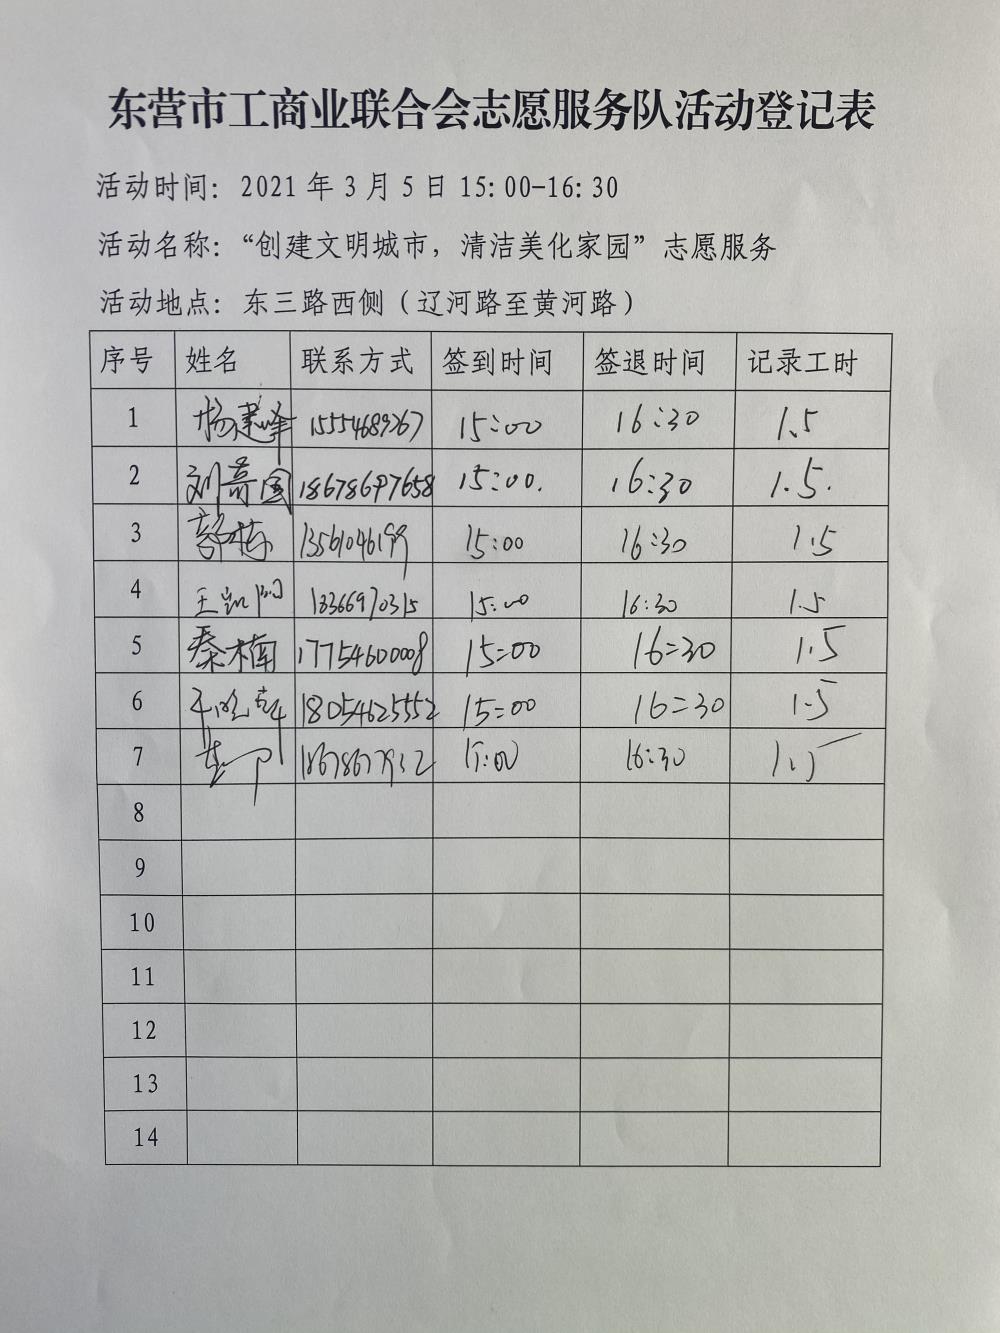 东营市工商业联合会志愿服务队活动登记表
活动时间: 2021 年 3 月 5 日 15:00-16:30
活动名称: “创建文明城市，清洁美化家园”志愿服务
活动地点: 东三路西侧（辽河路至黄河路）
序号 姓名 联系方式 签到时间 签退时间 记录工时
1 杨建峰 15554689267 15:00 16:30 1.5
2 刘景国 18678697658 15:00. 16:30 1.5.
3 13561046199 15:00 16:30 1.5
4 王凯 15:00 16:30 1.5
5 秦楠 17754600008 15:00 16:30 1.5
6 18054625552 15:00 16:30 1.5
7 15:00 16:30 1.5
8
9
10
11
12
13
14